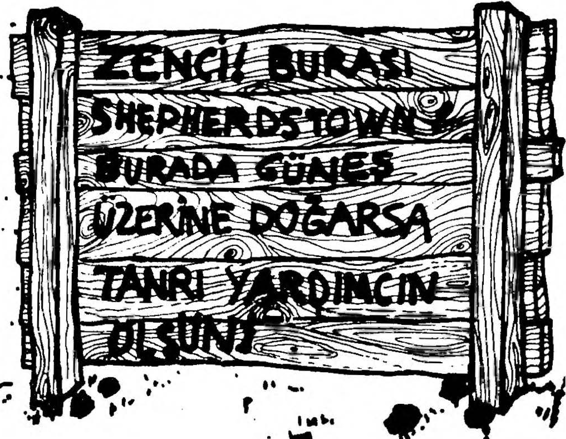 ZENCİ! BURASI
SHEPHERDSTOWN!
BURADA GÜNEŞ
ÜZERİNE DOĞARSA
TANRI YARDIMCIN
OLSUN!